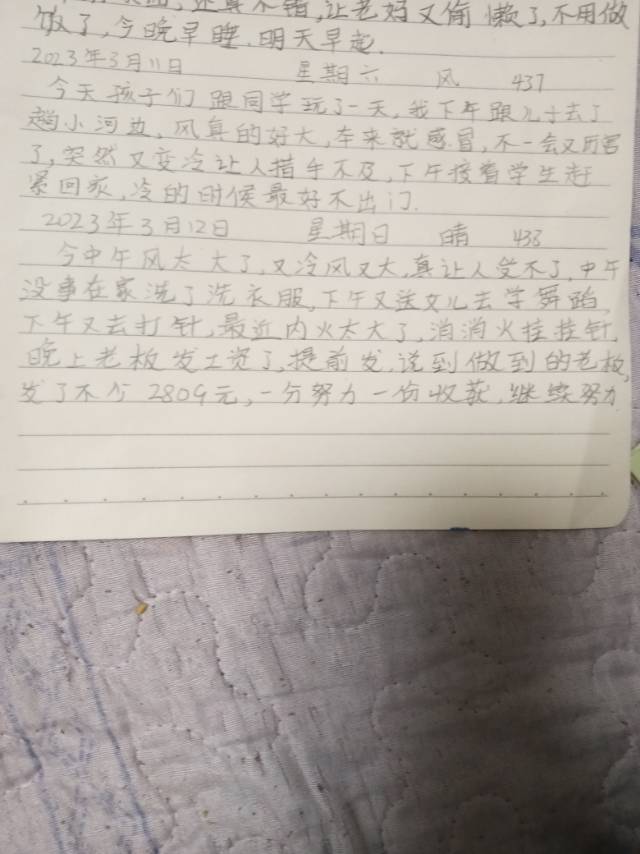 还真不错,让老妈又偷懒了,不用做
饭了,今晚早睡.明天早起.
2023年3月11日 星期六 风 437
今天孩子们跟同学玩了一天,我下午跟儿子去了
趟小河边,风真的好大,本来就感冒,不一会又厉害
了,突然又变冷让人措手不及,下午接着学生赶
紧回家,冷的时候最好不出门.
2023年3月12日 星期日 晴 438
今中午风太大了,又冷风又大,真让人受不了,中午
没事在家洗了洗衣服,下午又送女儿去学舞蹈,
下午又去打针,最近内火太大了,消消火挂挂针,
晚上老板发工资了,提前发,说到做到的老板,
发了不少2809元,一分努力一份收获,继续努力